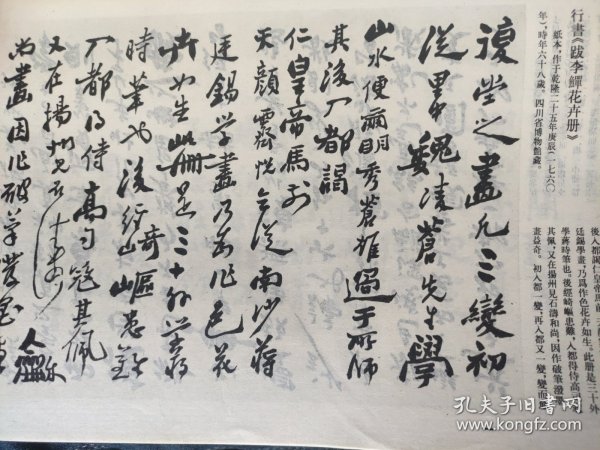 行書《跋李鱓花卉册》
紙本，作于乾隆二十五年庚辰（一七六〇
年），時年六十八歲。四川省博物館藏。
復堂之畫凡三變初
從里魏凌蒼先生學
山水便爾明秀蒼雄過于所師
其後入都謁
仁皇帝馬前
天顔霽悦令從南沙蔣
廷錫學畫乃為作色花
卉如生此册是三十外學蔣
時筆也後經崎嶇患難
入都得侍高司寇其佩
又在揚州見石濤和
尚畫因作破筆潑墨畫
後入都謁仁皇帝馬前
廷錫學畫，乃爲作色花卉如生。此册是三十外
學蔣時筆也。後經崎嶇患難，入都得侍高
其佩，又在揚州見石濤和尚，因作破筆潑
畫益奇。初入都一變，再入都又一變，變而
孔夫子旧书网
www.kongfz.com